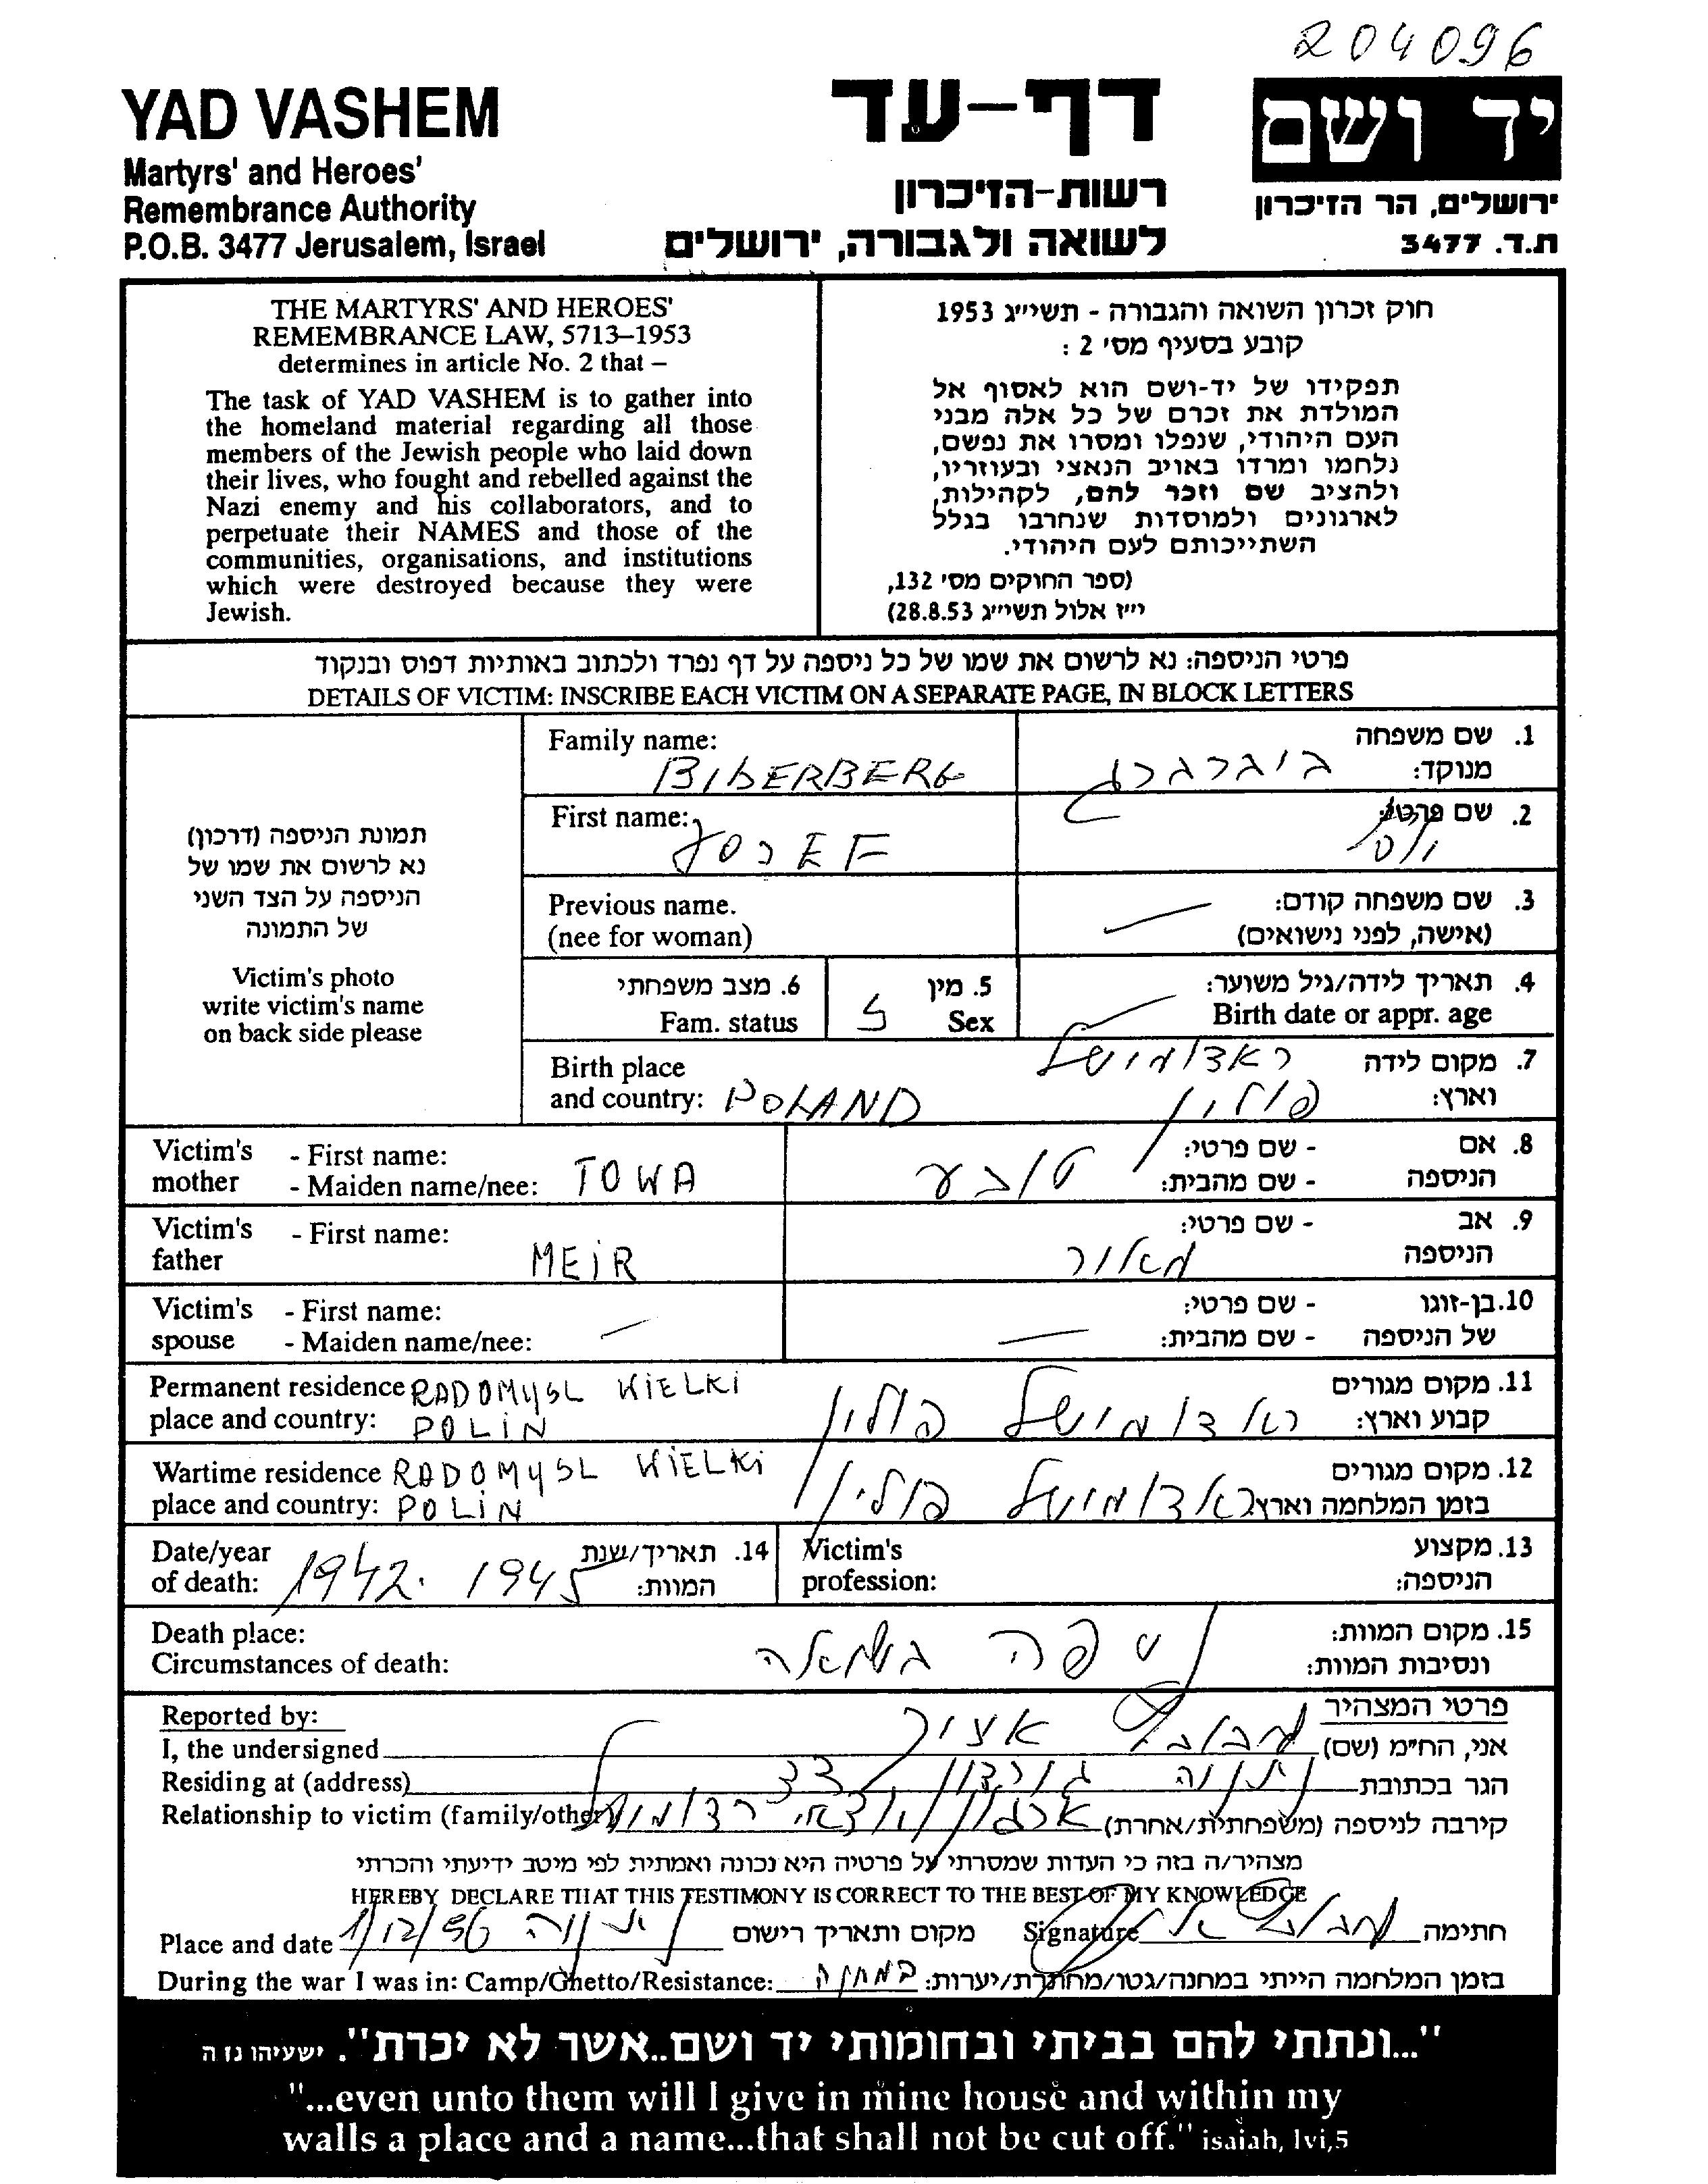 204096
YAD VASHEM
Martyrs' and Heroes'
Remembrance Authority
P.O.B. 3477 Jerusalem, Israel
דף-עד
רשות-הזיכרון
לשואה ולגבורה, ירושלים
יד ושם
ירושלים, הר הזיכרון
ת.ד. 3477
THE MARTYRS' AND HEROES'
REMEMBRANCE LAW, 5713–1953
determines in article No. 2 that –
The task of YAD VASHEM is to gather into
the homeland material regarding all those
members of the Jewish people who laid down
their lives, who fought and rebelled against the
Nazi enemy and his collaborators, and to
perpetuate their NAMES and those of the
communities, organisations, and institutions
which were destroyed because they were
Jewish.
חוק זכרון השואה והגבורה - תשי״ג 1953
קובע בסעיף מס׳ 2 :
תפקידו של יד-ושם הוא לאסוף אל
המולדת את זכרם של כל אלה מבני
העם היהודי, שנפלו ומסרו את נפשם,
נלחמו ומרדו באויב הנאצי ובעוזריו,
ולהציב שם וזכר להם, לקהילות,
לארגונים ולמוסדות שנחרבו בגלל
השתייכותם לעם היהודי.
(ספר החוקים מס׳ 132,
י״ז אלול תשי״ג 28.8.53)
פרטי הניספה: נא לרשום את שמו של כל ניספה על דף נפרד ולכתוב באותיות דפוס ובנקוד
DETAILS OF VICTIM: INSCRIBE EACH VICTIM ON A SEPARATE PAGE, IN BLOCK LETTERS
תמונת הניספה (דרכון)
נא לרשום את שמו של
הניספה על הצד השני
של התמונה
Victim's photo
write victim's name
on back side please
1. שם משפחה
מנוקד: ביברברג
Family name:
BIBERBERG
2. שם פרטי:
First name:
JOSEF
3. שם משפחה קודם:
(אישה, לפני נישואים)
Previous name.
(nee for woman)
4. תאריך לידה/גיל משוער:
Birth date or appr. age
5. מין
Sex
6. מצב משפחתי
Fam. status
7. מקום לידה ראדומישל
וארץ: פולין
Birth place
and country: POLAND
8. אם - שם פרטי:
הניספה - שם מהבית: טובע
Victim's - First name:
mother - Maiden name/nee: TOWA
9. אב - שם פרטי:
הניספה מאיר
Victim's - First name:
father MEIR
10. בן-זוגו - שם פרטי:
של הניספה - שם מהבית:
Victim's - First name:
spouse - Maiden name/nee:
11. מקום מגורים
קבוע וארץ: ראדומישל פולין
Permanent residence RADOMYSL WIELKI
place and country: POLIN
12. מקום מגורים
בזמן המלחמה וארץ ראדומישל פולין
Wartime residence RADOMYSL WIELKI
place and country: POLIN
13. מקצוע
הניספה:
Victim's
profession:
14. תאריך/שנת
המוות:
Date/year
of death: 1942. 1945
15. מקום המוות:
ונסיבות המוות: בשואה
Death place:
Circumstances of death:
פרטי המצהיר
Reported by:
אני, הח״מ (שם)
I, the undersigned
הגר בכתובת
Residing at (address)
קירבה לניספה (משפחתית/אחרת) ארגון יוצאי רדומישל
Relationship to victim (family/other)
מצהיר/ה בזה כי העדות שמסרתי על פרטיה היא נכונה ואמתית לפי מיטב ידיעתי והכרתי
HEREBY DECLARE THAT THIS TESTIMONY IS CORRECT TO THE BEST OF MY KNOWLEDGE
Place and date 1/12/96 מקום ותאריך רישום
Signature חתימה
During the war I was in: Camp/Ghetto/Resistance: במחנה בזמן המלחמה הייתי במחנה/גטו/מחתרת/יערות:
"...ונתתי להם בביתי ובחומותי יד ושם..אשר לא יכרת". ישעיהו נו ה
"...even unto them will I give in mine house and within my
walls a place and a name...that shall not be cut off." isaiah, lvi,5